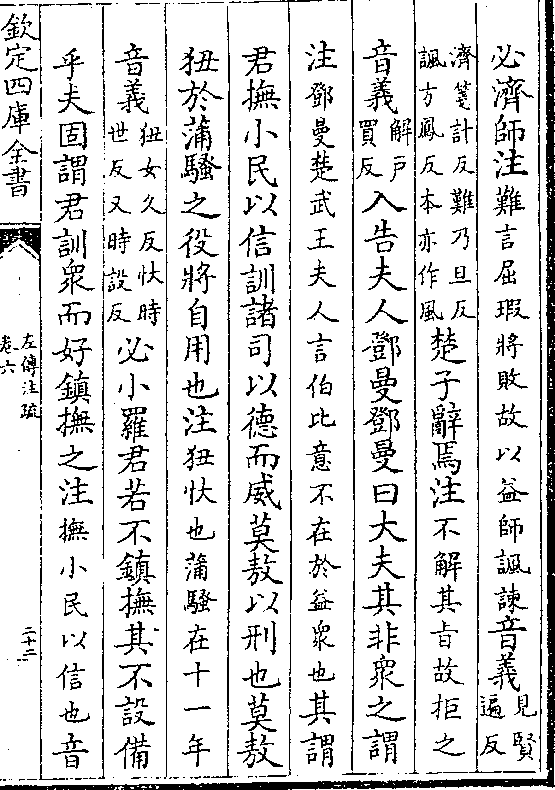 必濟師注難言屈瑕將敗故以益師諷諫音義見賢遍反
濟箋計反難乃旦反諷方鳳反本亦作風楚子辭焉注不解其㫖故拒之
音義解户買反入告夫人鄧曼鄧曼曰大夫其非衆之謂
注鄧曼楚武王夫人言伯比意不在於益衆也其謂
君撫小民以信訓諸司以德而威莫敖以刑也莫敖
狃於蒲騷之役將自用也注狃忕也蒲騷在十一年
音義狃女久反忕時世反又時設反必小羅君若不鎮撫其不設備
乎夫固謂君訓衆而好鎮撫之注撫小民以信也音
欽定四庫全書
左傳注疏
卷六
二十二